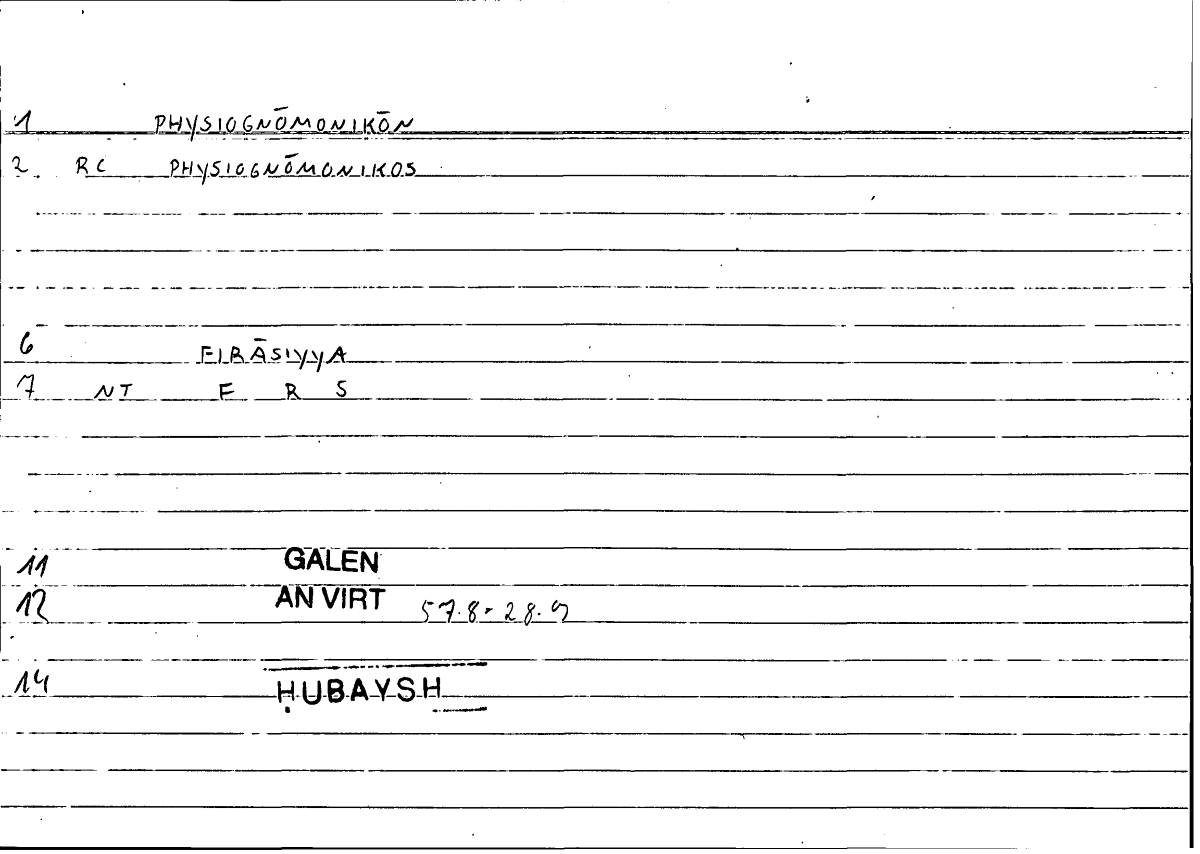 1 PHYSIOGNŌMONIKŌN
2. RC PHYSIOGNŌMONIKOS
6 FIRĀSIYYA
7 NT F R S
11 GALEN
12 AN VIRT 57.8-28.9
14 ḤUBAYSH